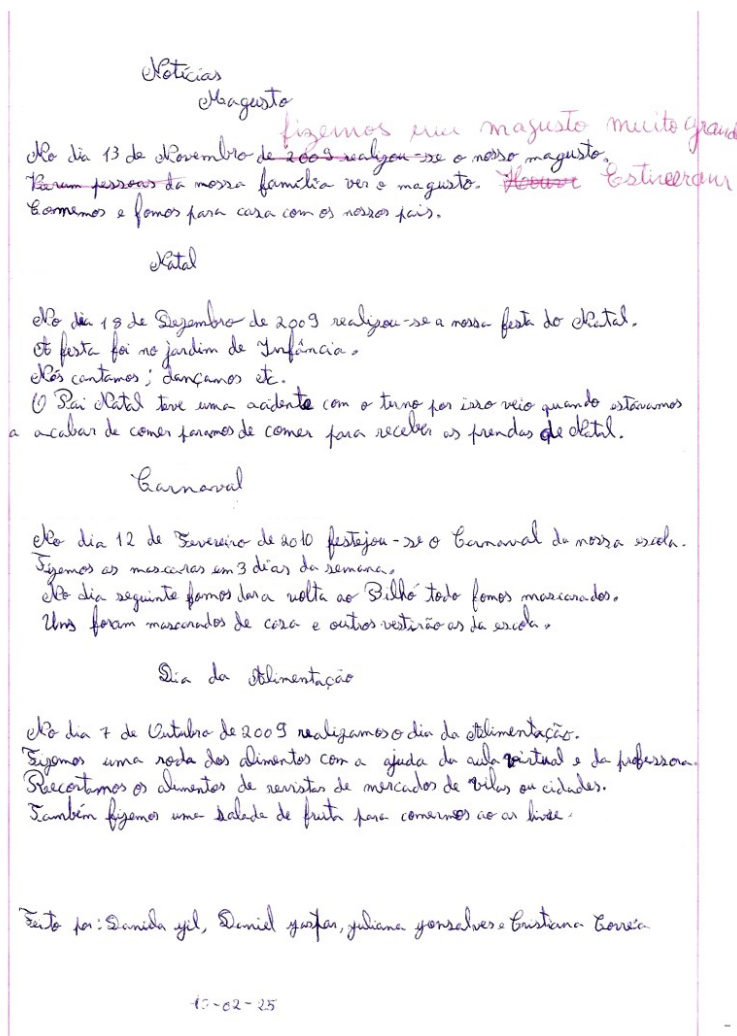 Notícias
Magusto
fizemos um magusto muito grand
No dia 13 de Novembro de 2009 realizou-se o nosso magusto.
Vieram pessoas da nossa família ver o magusto. Houve Estiveram
Comemos e fomos para casa com os nossos pais.
Natal
No dia 18 de Dezembro de 2009 realizou-se a nossa festa do Natal.
A festa foi no jardim de Infância.
Nós cantamos; dançamos etc.
O Pai Natal teve uma acidente com o turno por isso veio quando estávamos
a acabar de comer paramos de comer para receber as prendas de Natal.
Carnaval
No dia 12 de Fevereiro de 2010 festejou-se o Carnaval da nossa escola.
Fizemos as mascaras em 3 dias da semana.
No dia seguinte fomos dar a volta ao Bilhó todo fomos mascarados.
Uns foram mascarados de casa e outros vestirão as da escola.
Dia da Alimentação
No dia 7 de Outubro de 2009 realizamos o dia da Alimentação.
Fizemos uma roda dos alimentos com a ajuda da aula virtual e da professora.
Recortamos os alimentos de revistas de mercados de vilas ou cidades.
Também fizemos uma salada de fruta para comermos ao ar livre.
Feito por: Daniela gil, Daniel gaspar, juliana gonsalves e Cristiana Correia
10-02-25